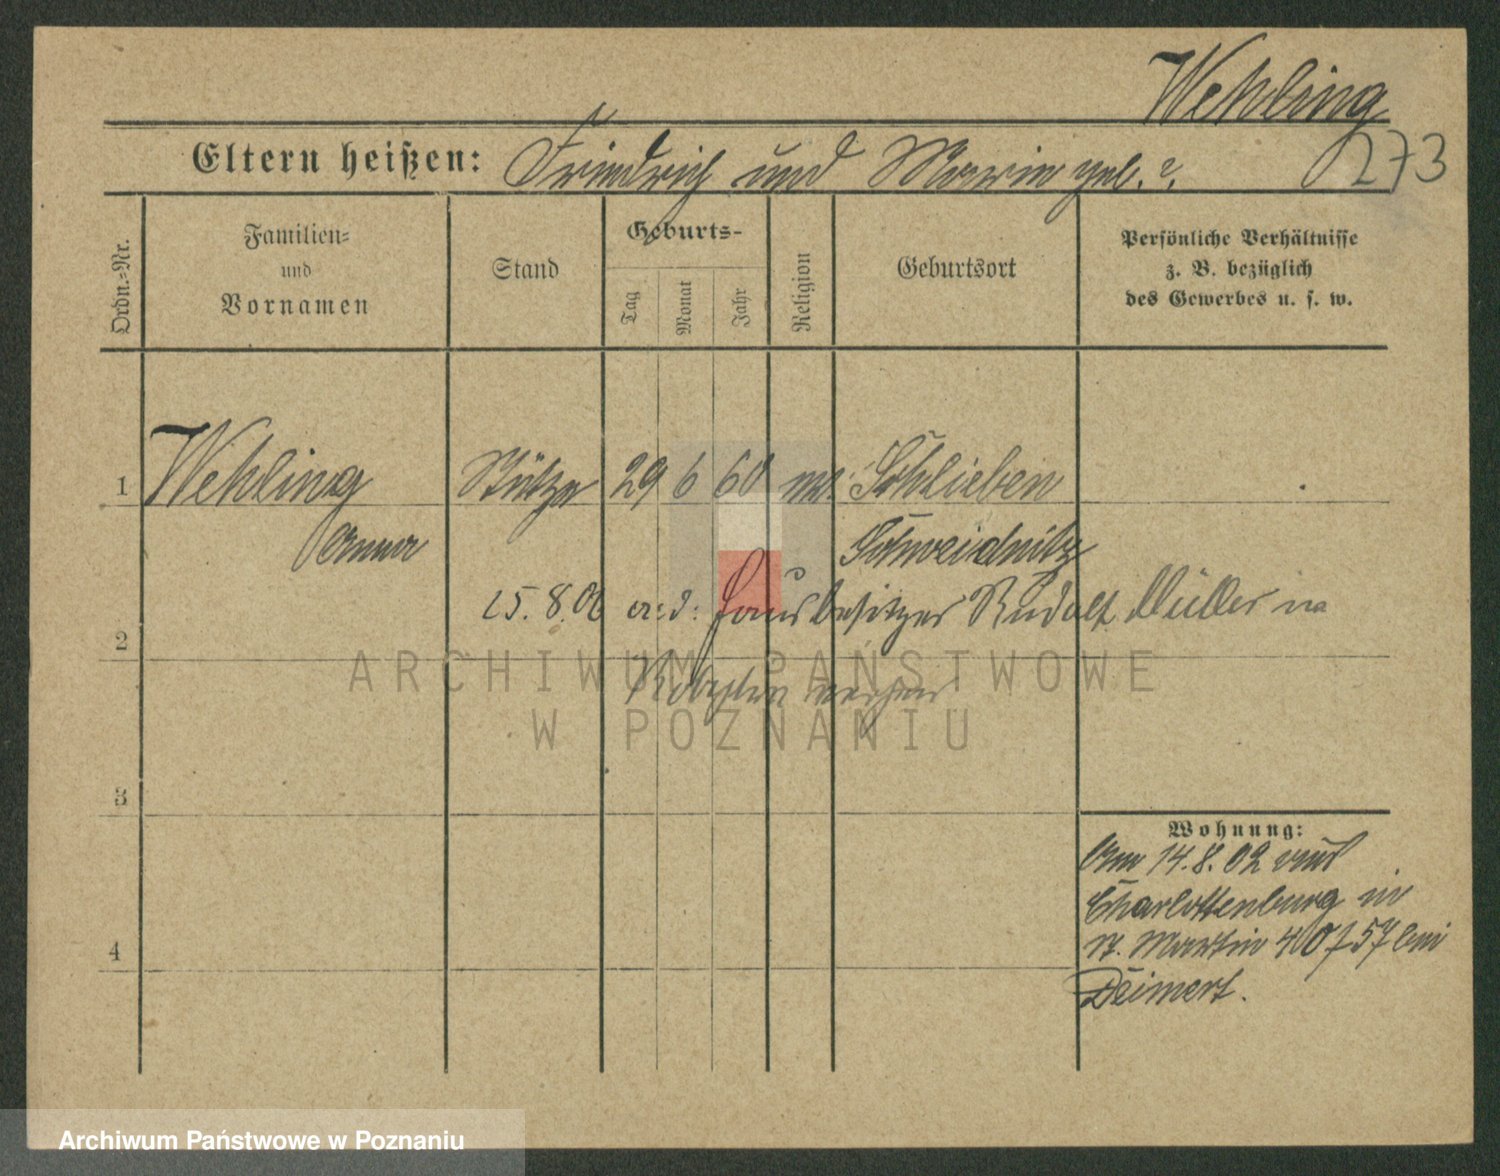 Wehling
Eltern heißen: Friedrich und Marie geb. ?.
273
Ordn.=Nr.
Familien=
und
Vornamen
Stand
Geburts-
Tag
Monat
Jahr
Religion
Geburtsort
Persönliche Verhältnisse
z. B. bezüglich
des Gewerbes u. s. w.
1 Wehling Stütze 29 6 60 Schlieben
Anna Schweidnitz
15.8.06 Hausbesitzer Rudolf Müller in
2
Kobylin
3
Wohnung:
Am 14.8.02 aus
Charlottenburg in
St. Martin 40 57 bei
4
Deimert.
ARCHIWUM PAŃSTWOWE
W POZNANIU
Archiwum Państwowe w Poznaniu